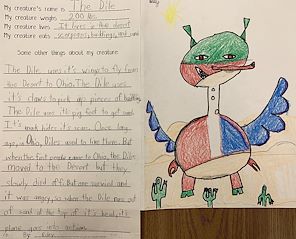 My creature's name is The Dile
My creature weighs 200 lbs.
My creature lives It lives in the desert
My creature eats scorpions, buildings, and sand
Some other things about my creature
The Dile uses it's wings to fly from
the Desert to Ohio. The Dile uses
it's claws to pick up pieces of building.
The Dile uses it's pig feet to get sand.
It's mask hides it's scars. Once long
ago, in Ohio, Diles used to live there. But
when the first people came to Ohio, the Dile
moved to the Desert but they
slowly died off. But one survived and
it was angry, so when the Dile runs out
of sand at the top of it's head, it's
plans goes into action.
By